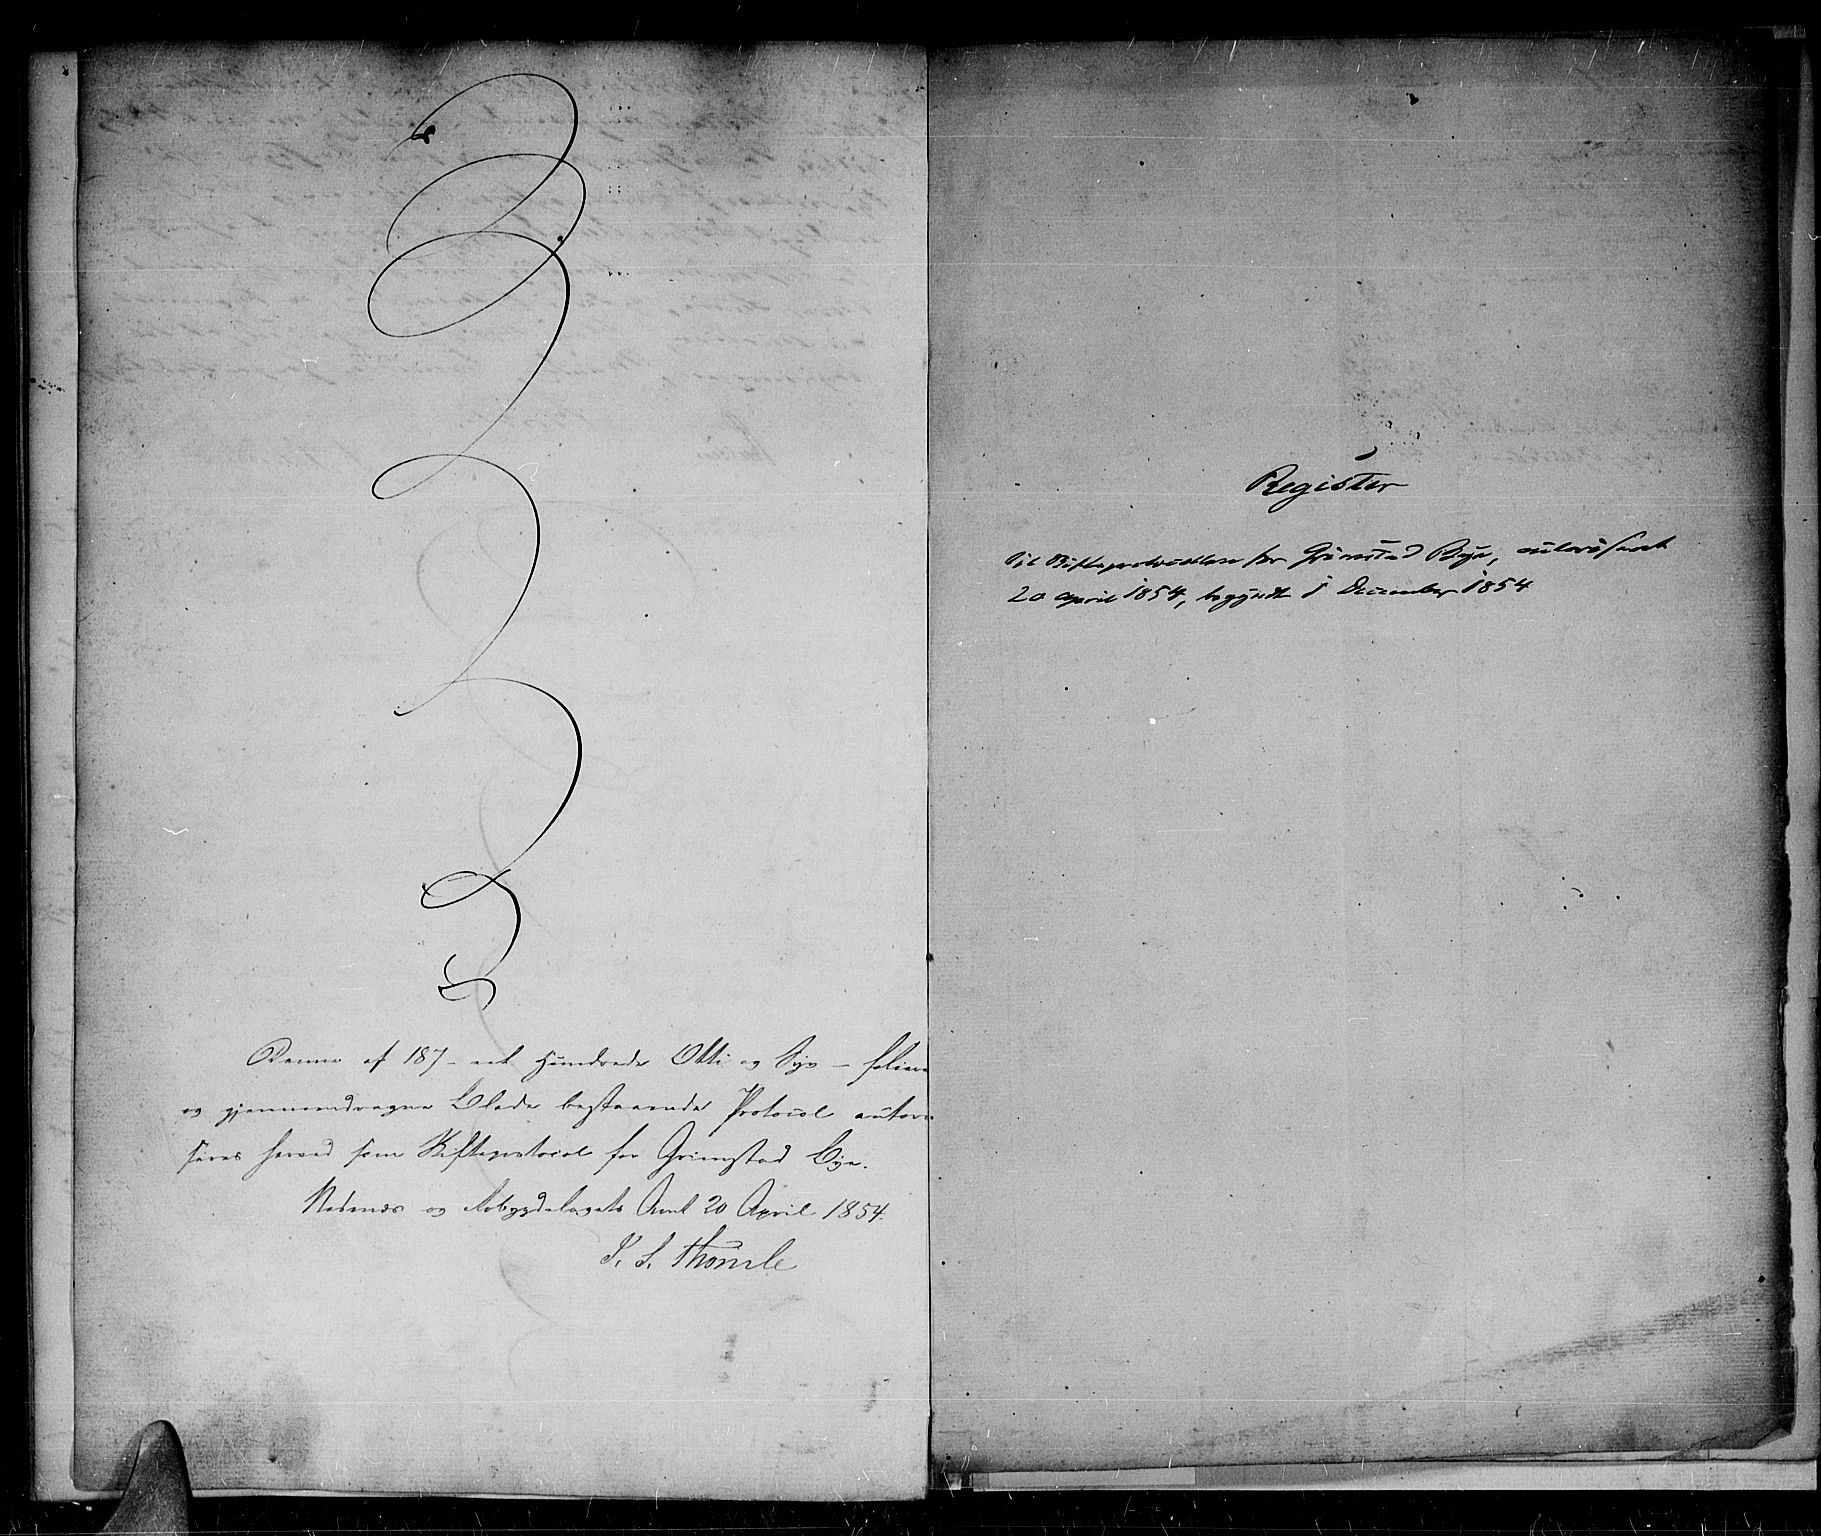 Denne af 187 - et Hundrede Otti og Syv - folierede
og gjennemdragne Blade bestaaende Protocol autori-
seres herved som Skifteprotocol for Grimstad Bye.
Nedenæs og Robygdelagets Amt 20 April 1854.
Register
til Skifteprotocollen for Grimstad Bye, autoriseret
20 april 1854, begyndt 1 December 1854